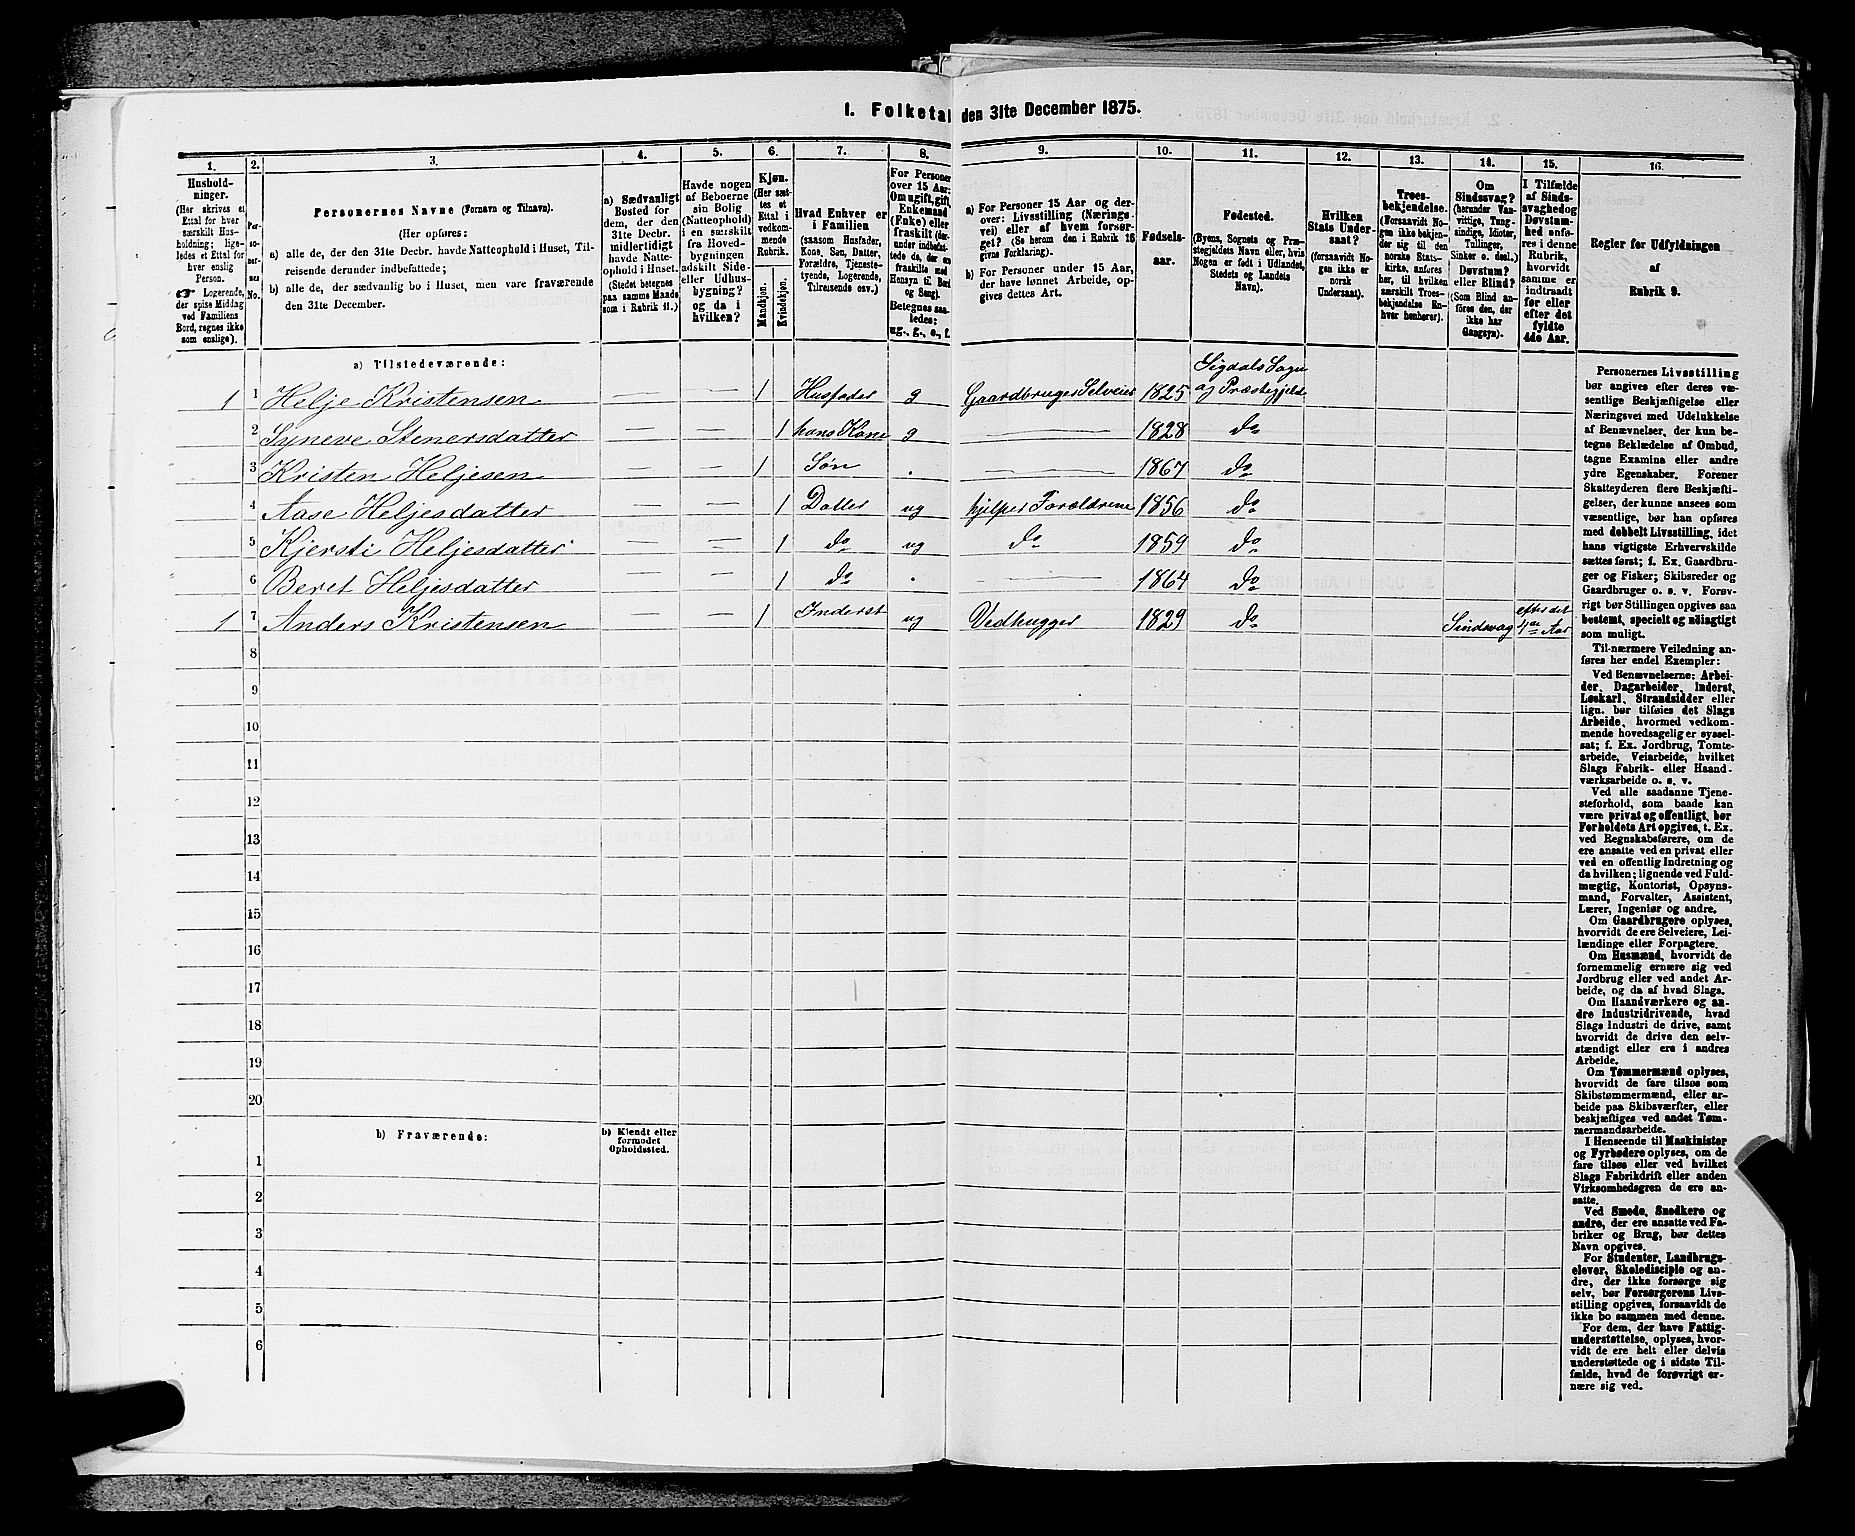 1. Folketal den 31te December 1875.
1. 2. 3. 4. 5. 6. 7. 8. 9. 10. 11. 12. 13. 14. 15. 16.
Hushold-
ninger.
(Her skrives et
Ettal for hver
særskilt Hus-
holdning; lige-
ledes et Ettal for
hver enslig
Person.
☞ Logerende,
der spise Middag
ved Familiens
Bord, regnes ikke
som enslige).
Per-
so-
ner-
nes
No.
Personernes Navne (Fornavn og Tilnavn).
(Her opføres:
a) alle de, der den 31te Decbr. havde Natteophold i Huset, Til-
reisende derunder indbefattede;
b) alle de, der sædvanlig bo i Huset, men vare fraværende
den 31te December.
a) Sædvanligt
Bosted for
dem, der den
31te Decbr.
midlertidigt
havde Natte-
ophold i Huset.
(Stedet betegnes
paa samme Maade
som i Rubrik 11.)
Havde nogen
af Beboerne
sin Bolig
(Natteophold)
i en særskilt
fra Hoved-
bygningen
adskilt Side-
eller Udhus-
bygning?
og da i
hvilken?
Kjøn.
(Her sæt-
tes et
Ettal i
vedkom-
mende
Rubrik.
Mandkjøn.
Kvindekjøn.
Hvad Enhver er
i Familien
(saasom Husfader,
Kone, Søn, Datter,
Forældre, Tjeneste-
tyende, Logerende,
Tilreisende osv.)
For Personer
over 15 Aar:
Om ugift, gift,
Enkemand
(Enke) eller
fraskilt (der-
under indbefat-
tede de, der ere
fraskilte med
Hensyn til Bord
og Seng).
Betegnes saa-
ledes:
ug., g., e., f.
a) For Personer 15 Aar og der-
over: Livsstilling (Nærings-
vei) eller af hvem forsør-
get? (Se herom den i Rubrik 16
givne Forklaring).
b) For Personer under 15 Aar,
der have lønnet Arbeide, op-
gives dettes Art.
Fødsels-
aar.
Fødested.
(Byens, Sognets og Præ-
stegjeldets Navn eller, hvis
Nogen er født i Udlandet,
Stedets og Landets
Navn).
Hvilken
Stats Under-
saat?
(forsaavidt No-
gen ikke er
norsk
Undersaat).
Troes-
bekjendelse.
(Forsaavidt No-
gen ikke bekjen-
der sig til den
norske Stats-
kirke, anføres
her, til hvilken
særskilt Troes-
bekjendelse En-
hver henhører).
Om
Sindssvag?
(herunder Van-
vittige, Tung-
sindige, Idioter,
Tullinger,
Sinker o. desl.)
Døvstum?
eller Blind?
(Som Blind an-
føres den, der
ikke har
Gangsyn).
I Tilfælde
af Sinds-
svaghed og
Døvstum-
hed anfø-
res i denne
Rubrik,
hvorvidt
samme er
indtraadt
før eller
efter det
fyldte
4de Aar.
Regler for Udfyldningen
af
Rubrik 9.
a) Tilstedeværende:
Sigdals Sogn
1 1 Helje Kristensen — — 1 Husfader g Gaardbruger Selveier 1825 og Præstegjeld
2 Syneve Stenersdatter — — 1 hans Kone g — 1828 do
3 Kristen Heljesen — — 1 Søn . — 1867 do
4 Aase Heljesdatter — — 1 Datter ug hjelper Forældrene 1856 do
5 Kjersti Heljesdatter — — 1 do ug do 1859 do
6 Beret Heljesdatter — — 1 do . — 1864 do
1 7 Anders Kristensen — — 1 Inderst ug Vedhugger 1829 do Sindsvag efter det 4de Aar
8
9
10
11
12
13
14
15
16
17
18
19
20
b) Fraværende:
b) Kjendt eller
formodet
Opholdssted.
1
2
3
4
5
6
Personernes Livsstilling
bør angives efter deres væ-
sentlige Beskjæftigelse eller
Næringsvei med Udelukkelse
af Benævnelser, der kun be-
tegne Beklædelse af Ombud,
tagne Examina eller andre
ydre Egenskaber. Forener
Skatteyderen flere Beskjæfti-
gelser, der kunne ansees som
væsentlige, bør han opføres
med dobbelt Livsstilling, idet
hans vigtigste Erhvervskilde
sættes først; f. Ex. Gaardbru-
ger og Fisker; Skibsreder og
Gaardbruger o. s. v. Forøv-
rigt bør Stillingen opgives saa
bestemt, specielt og nøiagtigt
som muligt.
Til nærmere Veiledning an-
føres her endel Exempler:
Ved Benævnelserne: Arbei-
der, Dagarbeider, Inderst,
Løskarl, Strandsidder eller
lign. bør tilføies det Slags
Arbeide, hvormed vedkom-
mende hovedsagelig er syssel-
sat; f. Ex. Jordbrug, Tomte-
arbeide, Veiarbeide, hvilket
Slags Fabrik- eller Haand-
værksarbeide o. s. v.
Ved alle saadanne Tjene-
steforhold, som baade kan
være privat og offentligt, bør
Forholdets Art opgives, t. Ex.
ved Regnskabsførere, om de
ere ansatte ved en privat eller
ved en offentlig Indretning og
da hvilken; lignende ved Fuld-
mægtig, Kontorist, Opsyns-
mand, Forvalter, Assistent,
Lærer, Ingeniør og andre.
Om Gaardbrugere oplyses,
hvorvidt de ere Selveiere, Lei-
lændinge eller Forpagtere.
Om Husmænd, hvorvidt de
fornemmelig ernære sig ved
Jordbrug eller ved andet Ar-
beide, og da af hvad Slags.
Om Haandværkere og an-
dre Industridrivende, hvad
Slags Industri de drive, samt
hvorvidt de drive den selv-
stændigt eller ere i andres
Arbeide.
Om Tømmermænd oplyses,
hvorvidt de fare tilsøs som
Skibstømmermænd, eller ar-
beide paa Skibsværfter, eller
beskjæftiges ved andet Tøm-
mermandsarbeide.
I Henseende til Maskinister
og Fyrbødere oplyses, om de
fare tilsøs eller ved hvilket
Slags Fabrikdrift eller anden
Virksomhedsgren de ere an-
satte.
Ved Smede, Snedkere og
andre, der ere ansatte ved Fa-
briker og Brug, bør dettes
Navn opgives.
For Studenter, Landbrugs-
elever, Skoledisciple og an-
dre, der ikke forsørge sig
selv, bør Forsørgerens Livs-
stilling opgives, forsaavidt de
ikke bo sammen med denne.
For dem, der have Fattig-
understøttelse, oplyses, hvor-
vidt de ere helt eller delvis
understøttede og i sidste Til-
fælde, hvad de forøvrigt er-
nære sig ved.